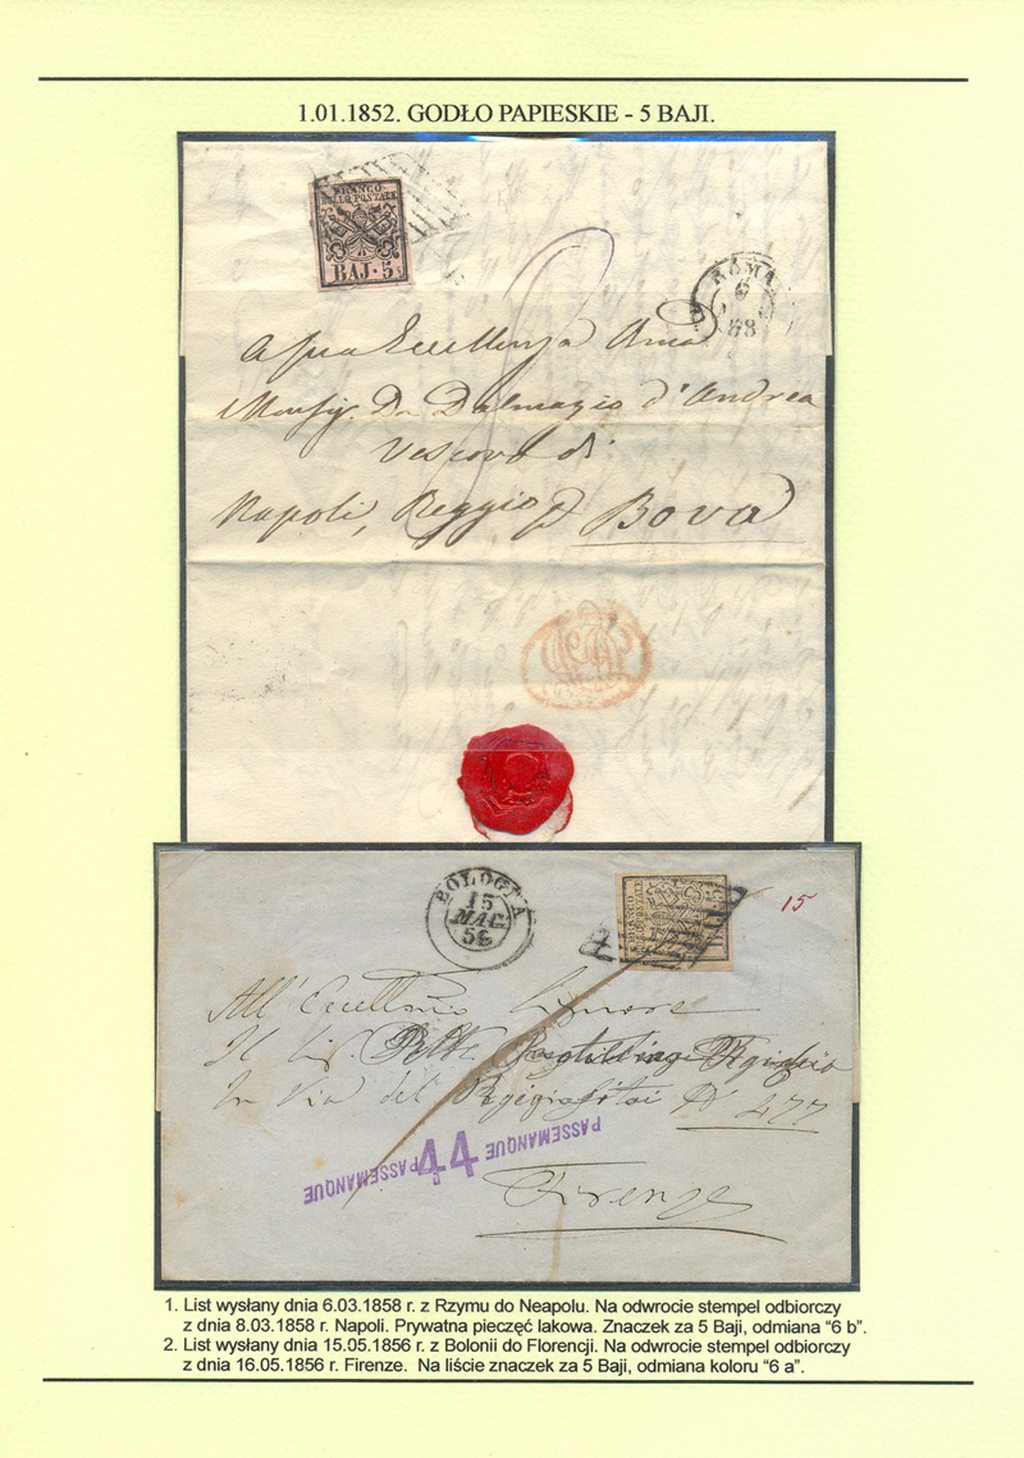 1.01.1852. GODŁO PAPIESKIE - 5 BAJI.
FRANCO
BOLLO POSTALE
BAJ · 5
ROMA
6
58
A Sua Eccellenza
Monsig. Dn Dalmazio d'Andrea
Vescovo di
Napoli, Reggio p Bova
BOLOGNA
15
MAG
56
FRANCO
BOLLO POSTALE
BAJ · 5
15
All'
Il Sig.
In Via del N 477
PASSEMANQUE 44 PASSEMANQUE
Firenze
1. List wysłany dnia 6.03.1858 r. z Rzymu do Neapolu. Na odwrocie stempel odbiorczy
z dnia 8.03.1858 r. Napoli. Prywatna pieczęć lakowa. Znaczek za 5 Baji, odmiana “6 b”.
2. List wysłany dnia 15.05.1856 r. z Bolonii do Florencji. Na odwrocie stempel odbiorczy
z dnia 16.05.1856 r. Firenze. Na liście znaczek za 5 Baji, odmiana koloru “6 a”.